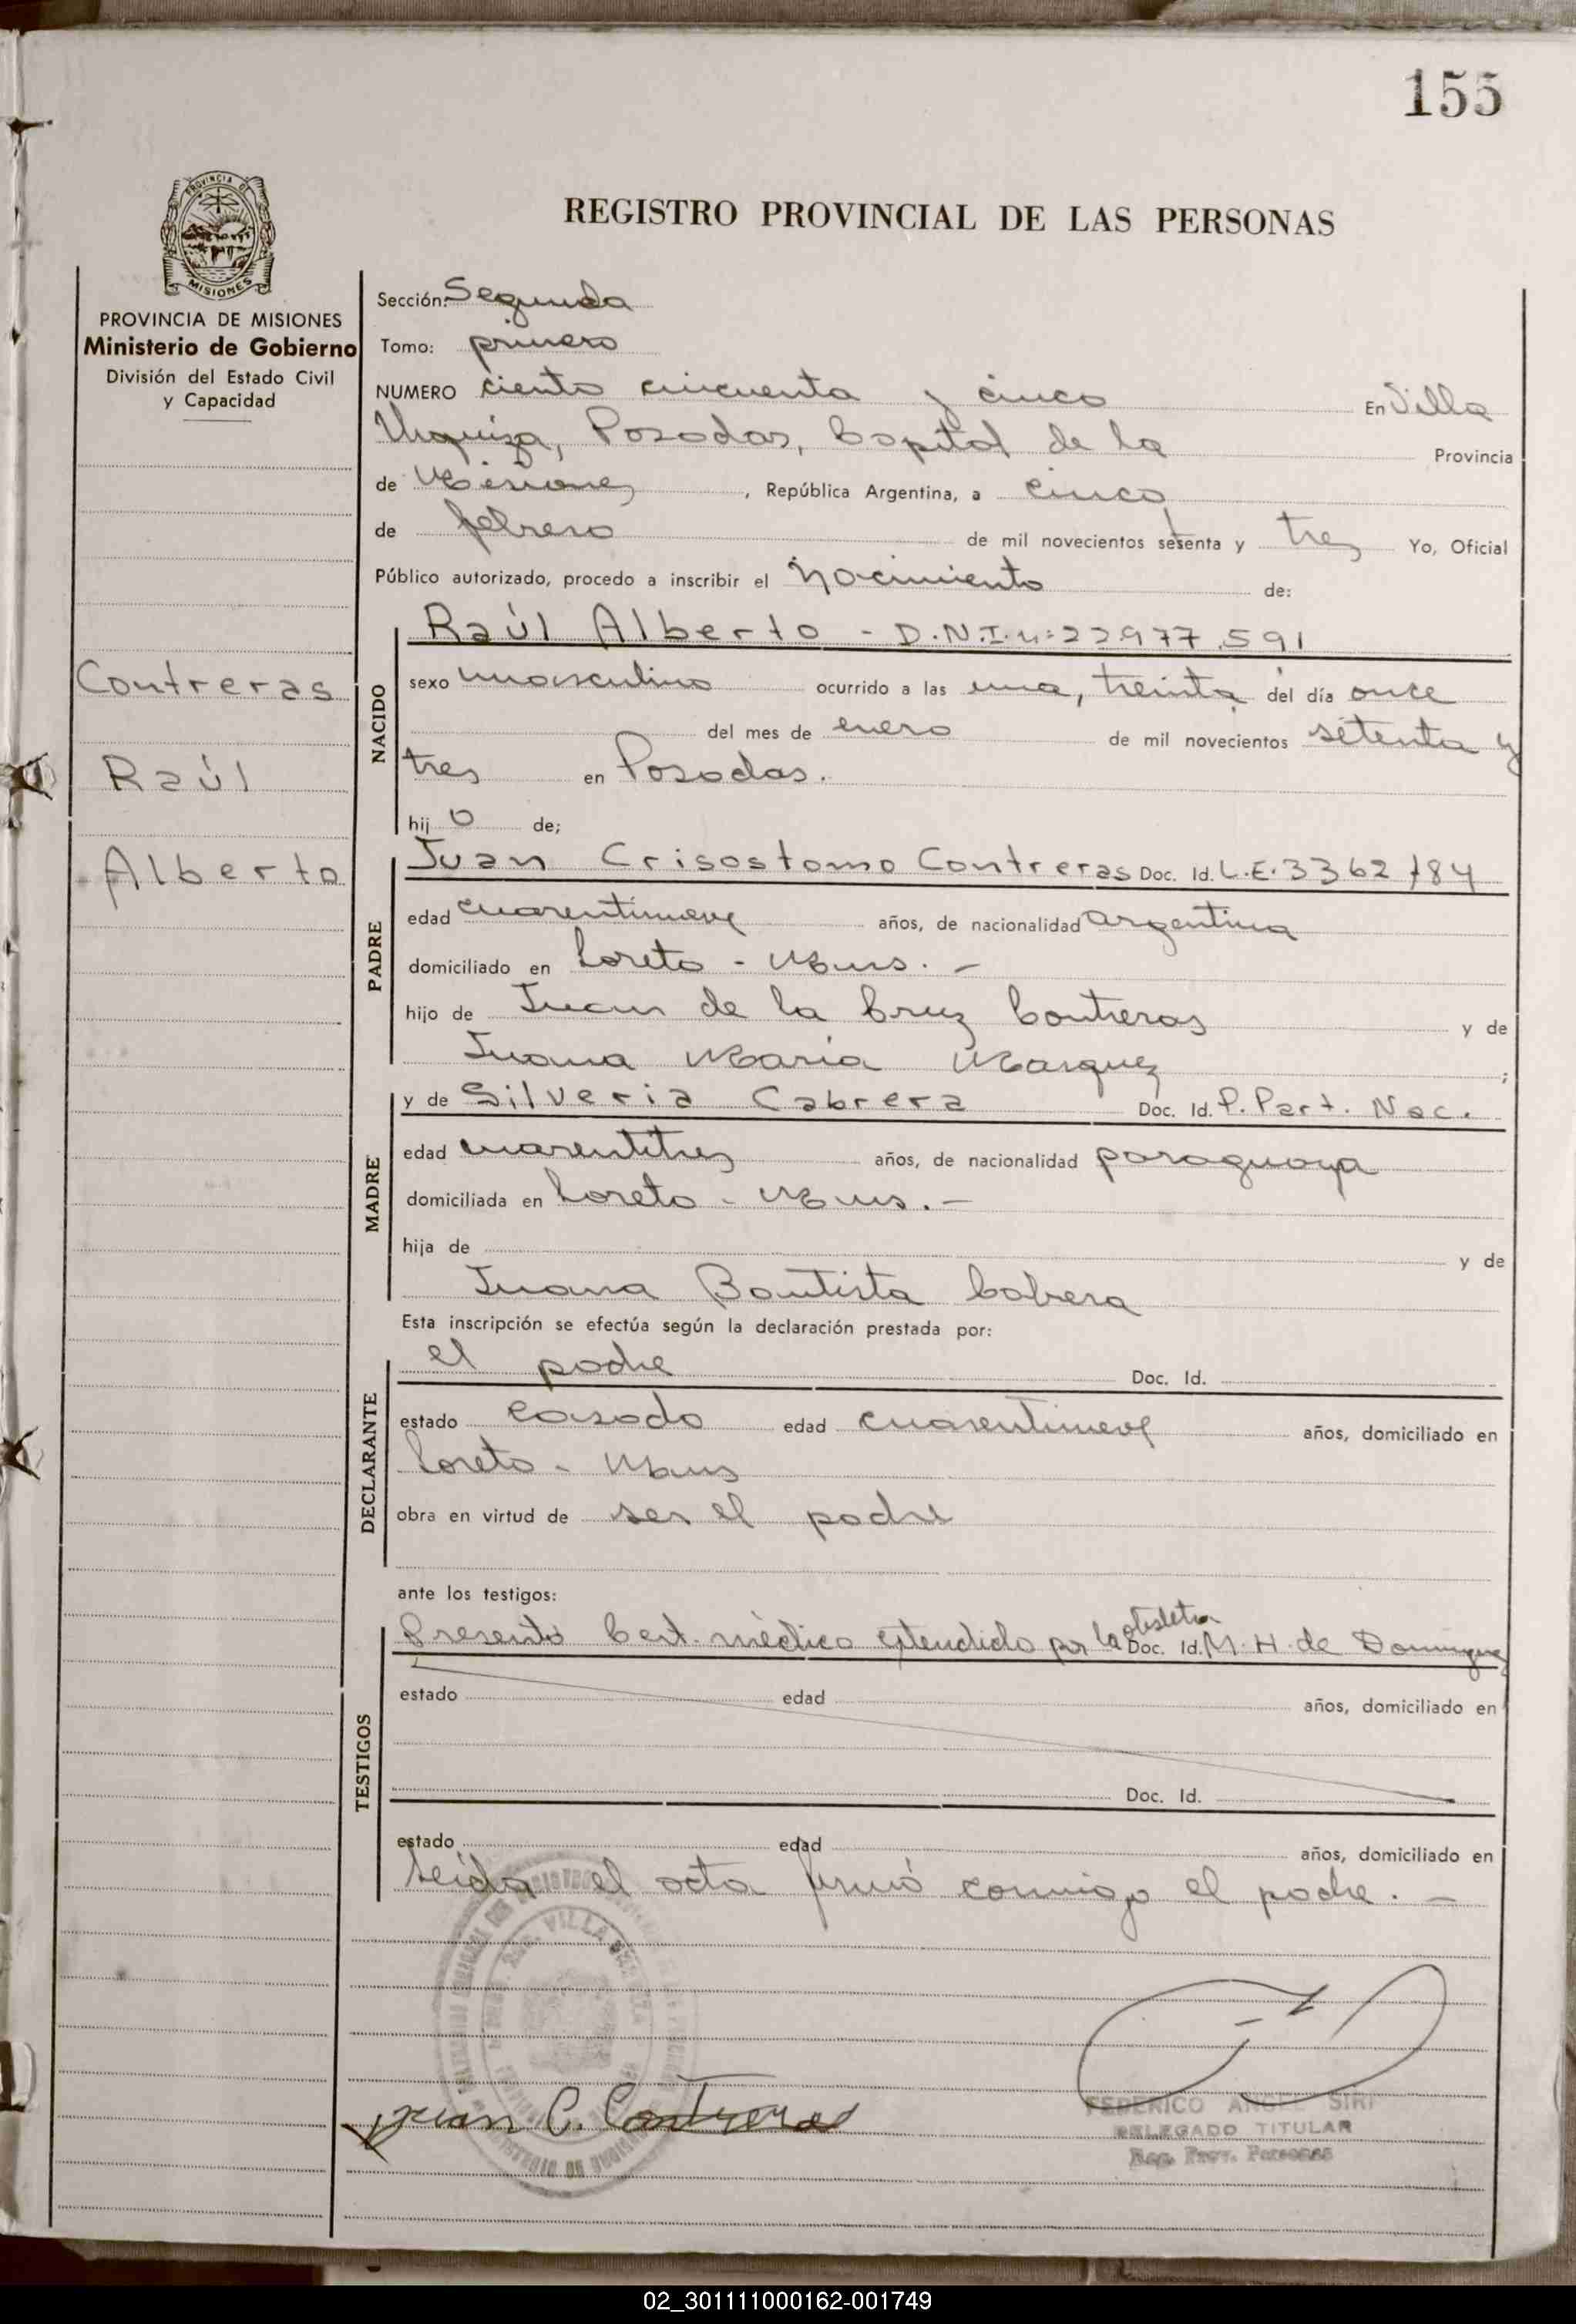 155
PROVINCIA DE
MISIONES
REGISTRO PROVINCIAL DE LAS PERSONAS
PROVINCIA DE MISIONES
Ministerio de Gobierno
División del Estado Civil
y Capacidad
Sección: Segunda
Tomo: primero
NUMERO ciento cincuenta y cinco En Villa
Urquiza, Posadas, Capital de la Provincia
de Misiones, República Argentina, a cinco
de febrero de mil novecientos setenta y tres Yo, Oficial
Público autorizado, procedo a inscribir el Nacimiento de:
Contreras
Raúl
Alberto
NACIDO
Raúl Alberto - D.N.I. nº 22.977.591
sexo masculino ocurrido a las una, treinta del día once
del mes de enero de mil novecientos setenta y
tres en Posadas.
hijo de;
PADRE
Juan Crisostomo Contreras Doc. Id. L.E. 3362784
edad cuarentinueve años, de nacionalidad argentina
domiciliado en Loreto - Mnes. -
hijo de Juan de la Cruz Contreras y de
Juana Maria Marquez ;
MADRE
y de Silveria Cabrera Doc. Id. P. Part. Nac.
edad cuarentitres años, de nacionalidad paraguaya
domiciliada en Loreto - Mnes. -
hija de y de
Juana Bautista Cabrera
Esta inscripción se efectúa según la declaración prestada por:
DECLARANTE
el padre Doc. Id.
estado casado edad cuarentinueve años, domiciliado en
Loreto - Mnes
obra en virtud de ser el padre
ante los testigos:
TESTIGOS
Presentó Cert. médico extendido por la obstetra Doc. Id. M. H. de Dominguez
estado edad años, domiciliado en
Doc. Id.
estado edad años, domiciliado en
Leida el acta firmó conmigo el padre. -
VILLA
Juan C. Contreras
FEDERICO ANGEL SIRI
DELEGADO TITULAR
Reg. Prov. Personas
02_301111000162-001749